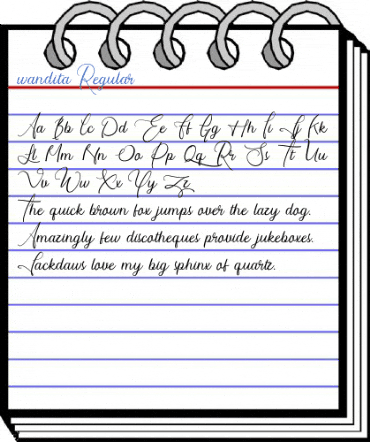 wandita Regular
Aa Bb Cc Dd Ee Ff Gg Hh Ii Jj Kk
Ll Mm Nn Oo Pp Qq Rr Ss Tt Uu
Vv Ww Xx Yy Zz
The quick brown fox jumps over the lazy dog.
Amazingly few discotheques provide jukeboxes.
Jackdaws love my big sphinx of quartz.